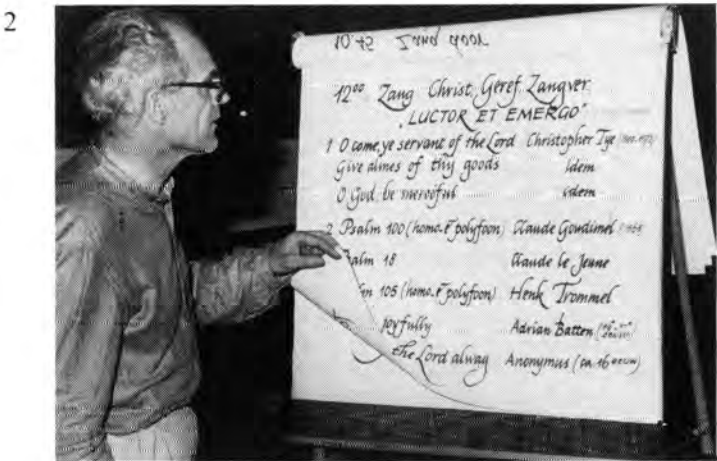 2
10.45 Zang door
12⁰⁰ Zang Christ. Geref. Zangver.
„LUCTOR ET EMERGO"
1 O come, ye servant of the Lord Christopher Tye
Give almes of thy goods idem
O God be merciful idem
2 Psalm 100 (homo. & polyfoon) Claude Goudimel
alm 18 Claude le Jeune
lm 105 (homo. & polyfoon) Henk Trommel
joyfully Adrian Batten
the Lord alway Anonymus (ca. 16 eeuw)